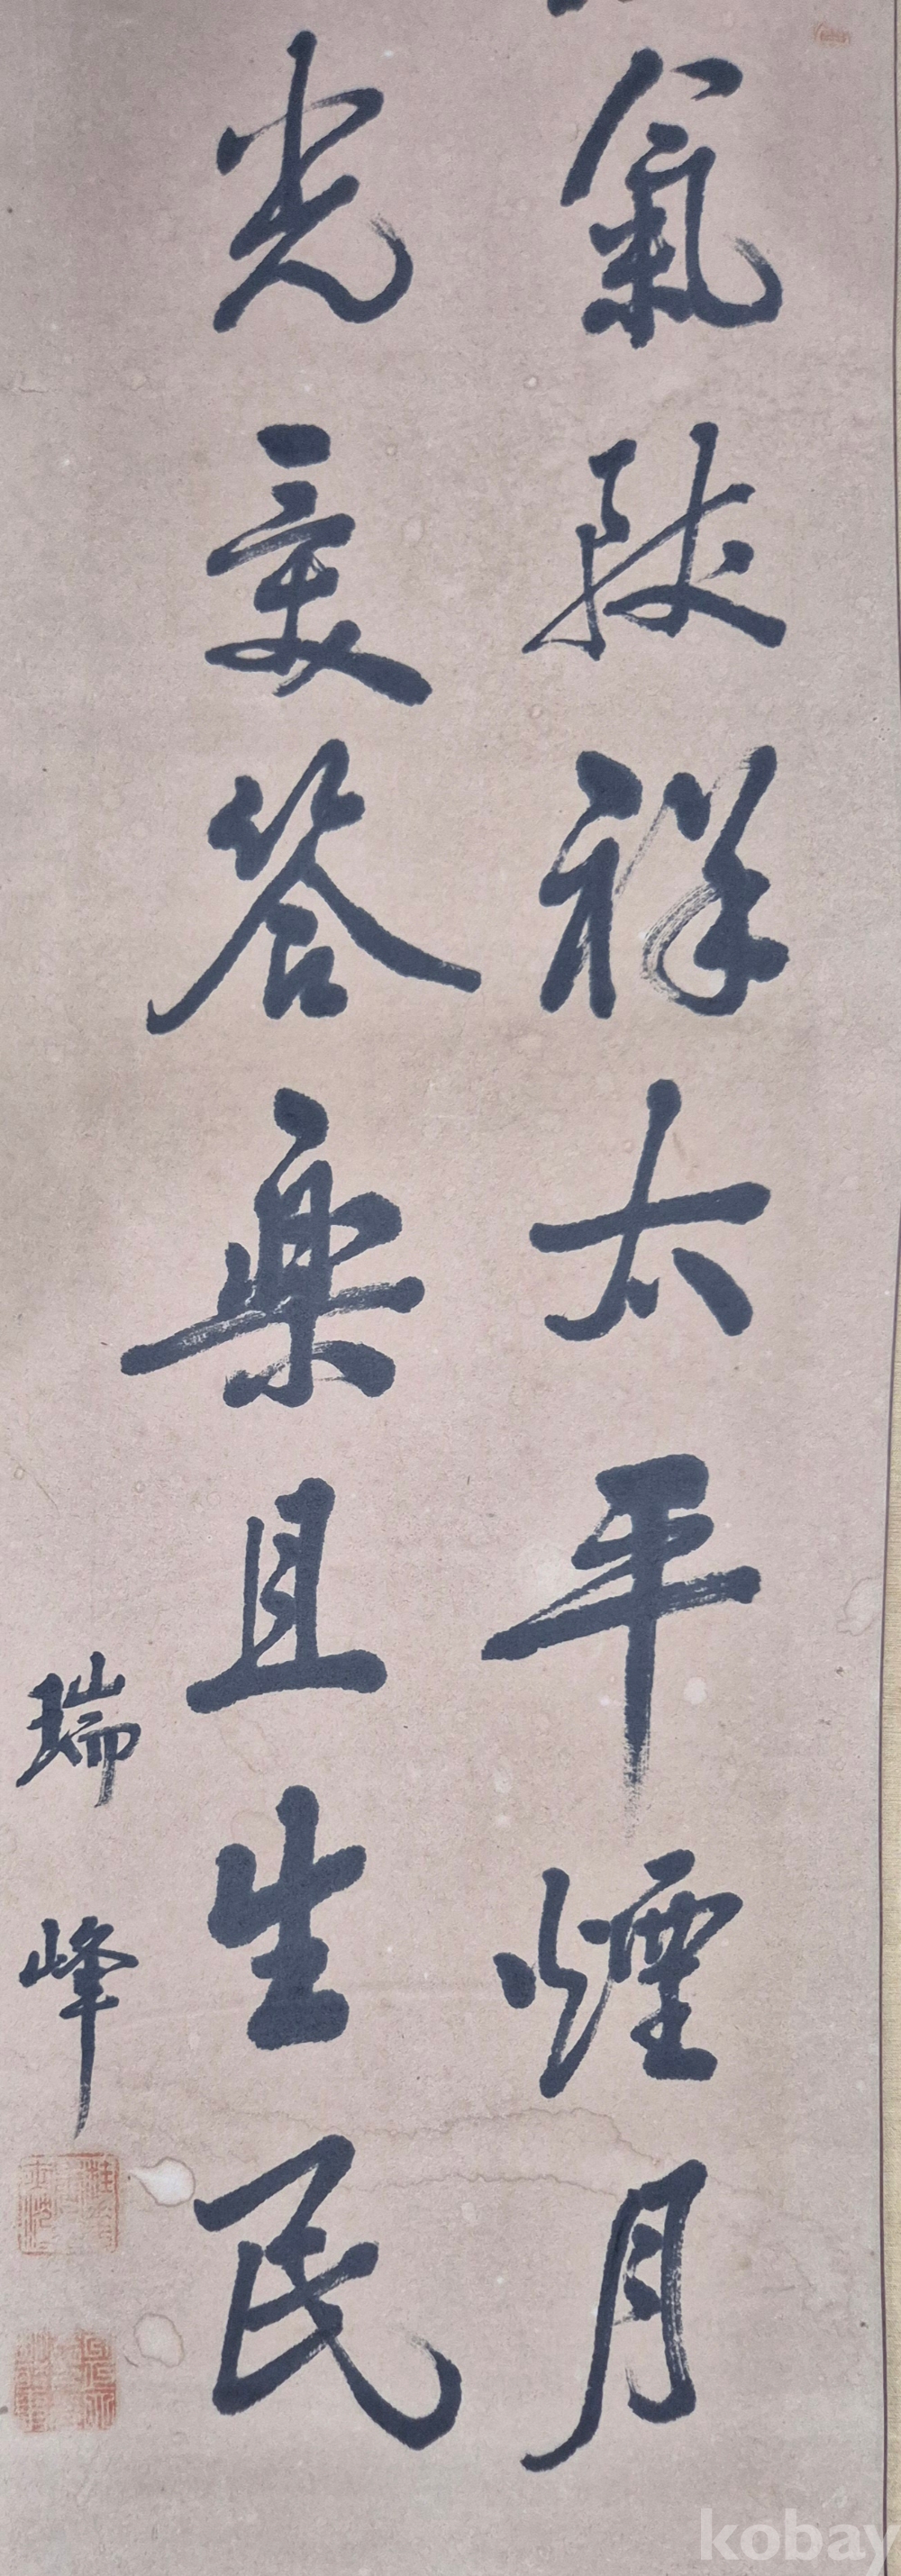 氣致祥太平煙月
光答樂且生民
瑞峰
kobay